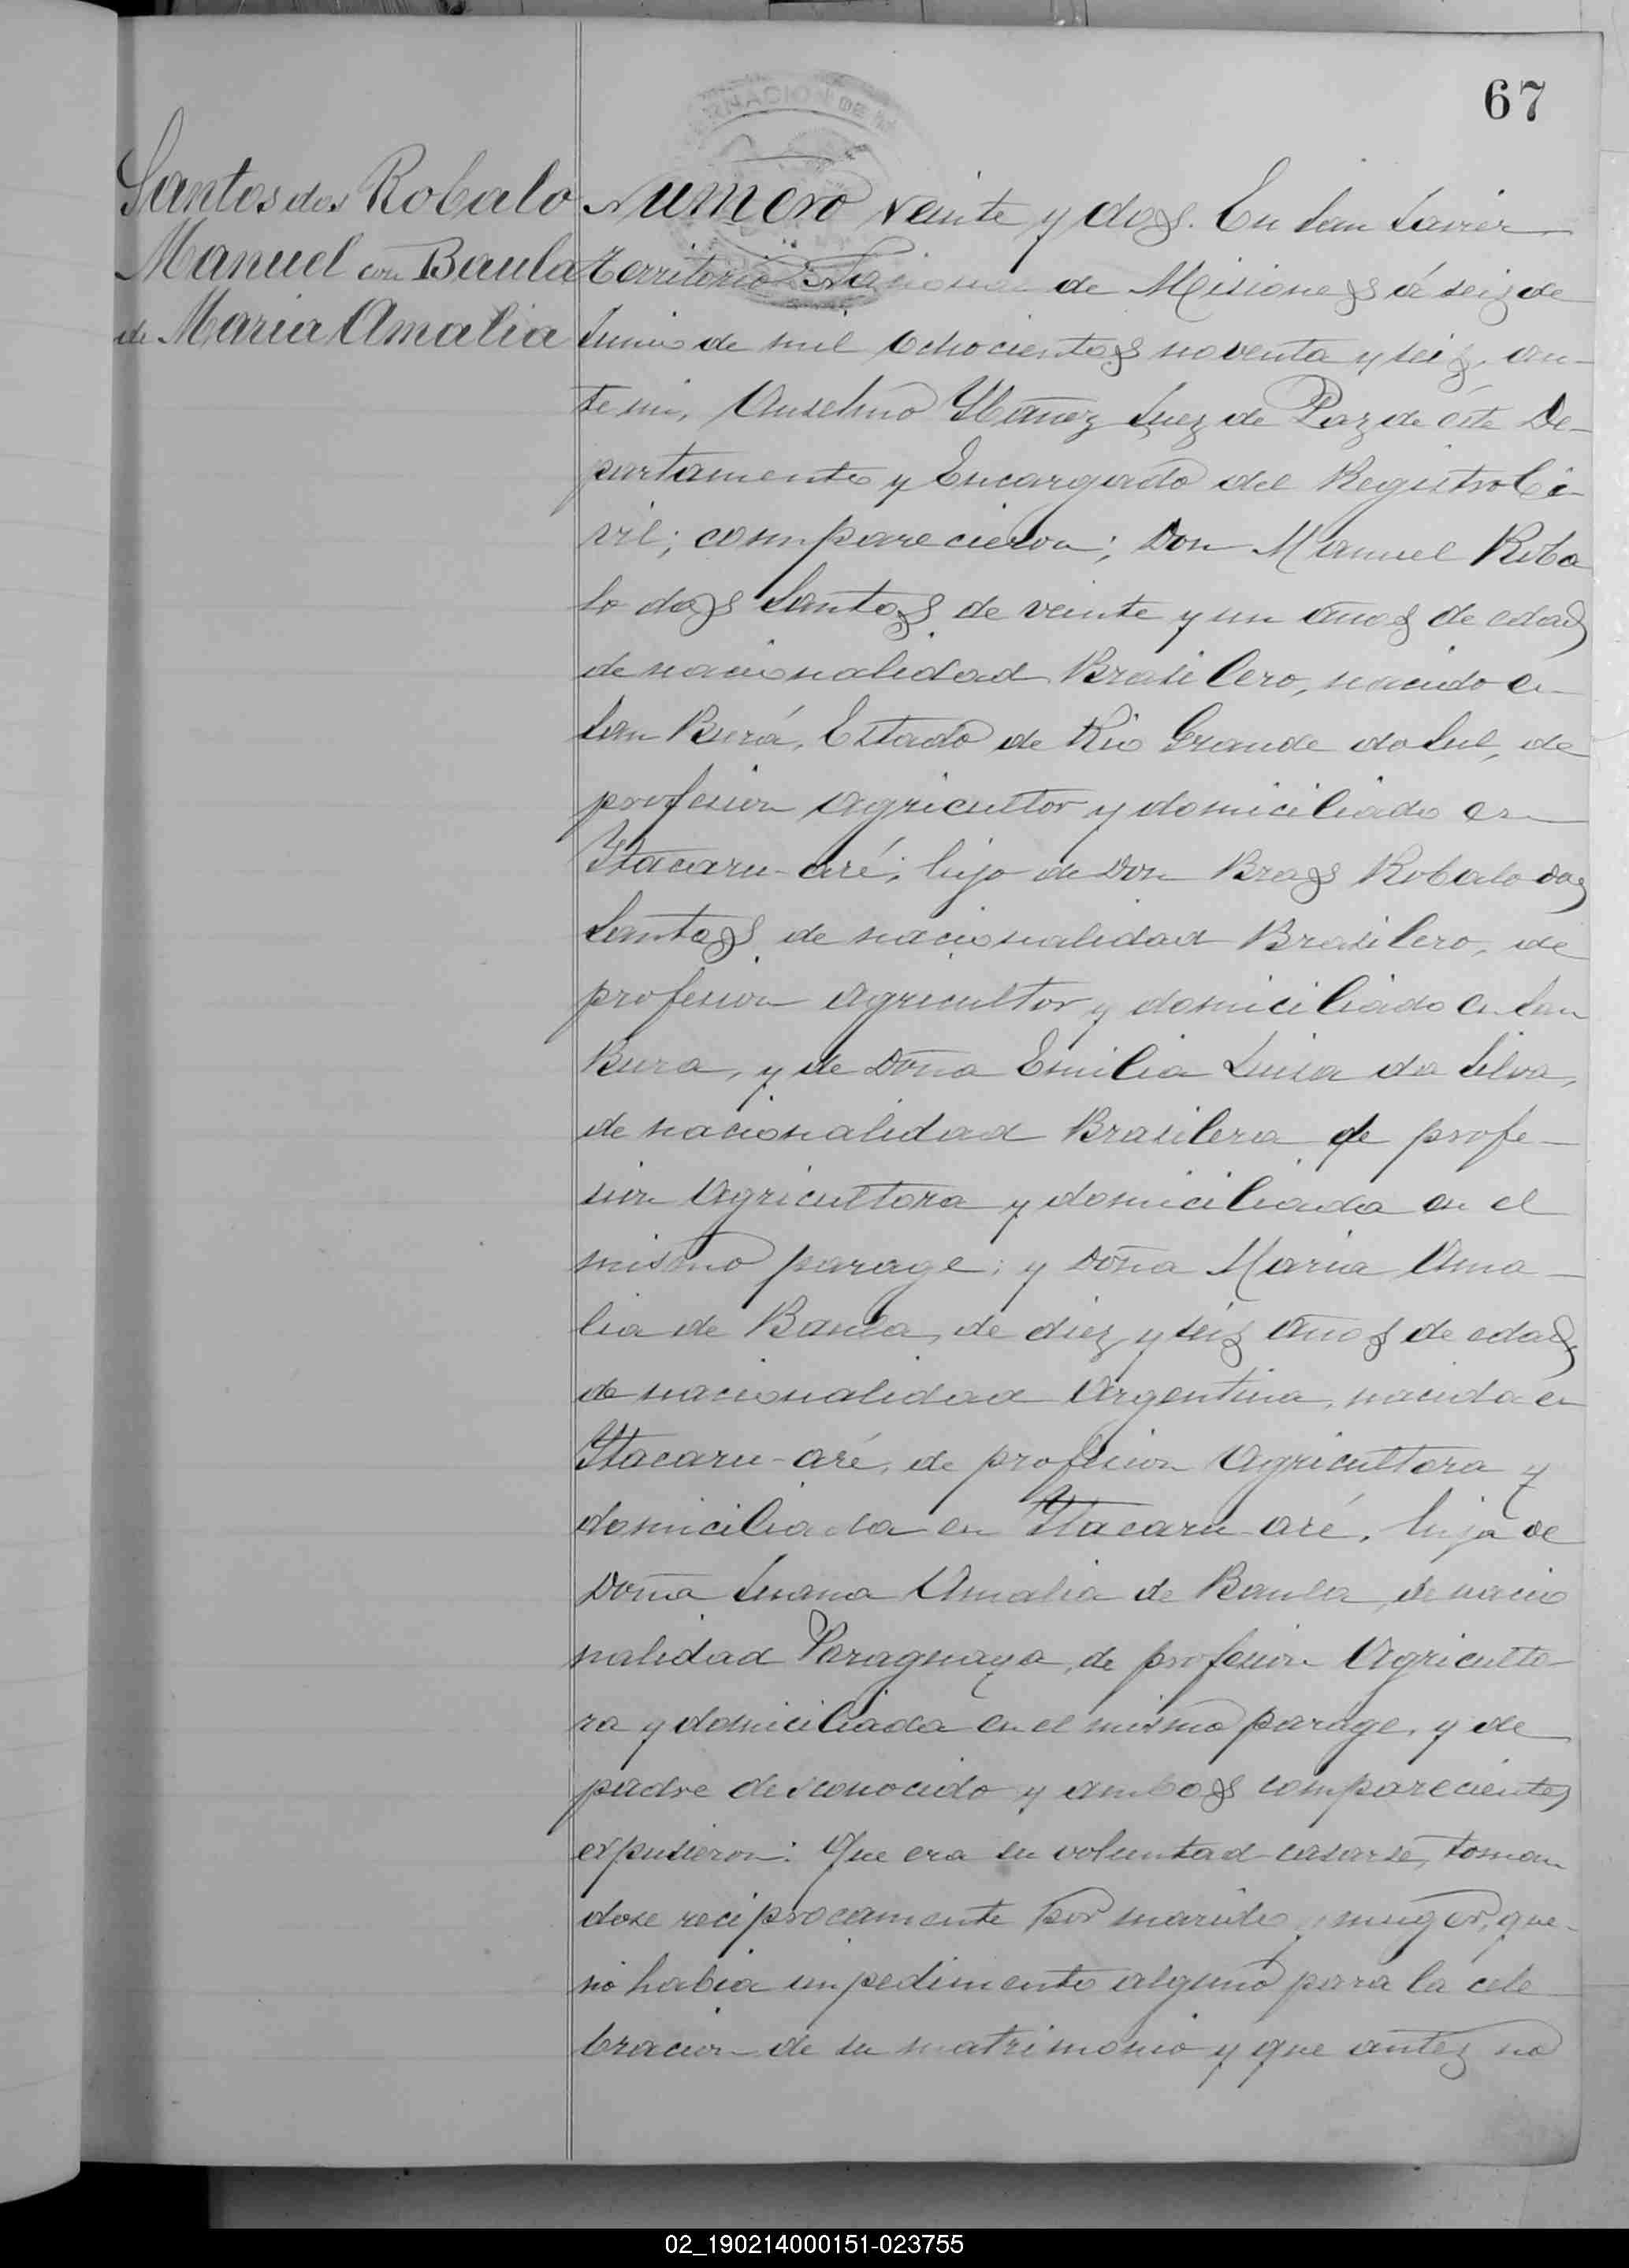 67
Santos dos Robalo
Manuel con Baula
de Maria Amalia
Numero veinte y dos. En San Javier
territorio Nacional de Misiones á seis de
Junio de mil ochocientos noventa y seis, an-
te mi, Anselmo Ybañez Juez de Paz de éste De-
partamento y Encargado del Registro Ci-
vil; comparecieron; Don Manuel Roba
lo dos Santos de veinte y un años de edad
de nacionalidad Brasilero, nacido en
San Burá, Estado de Rio Grande do Sul, de
profesion Agricultor y domiciliado en
Ytacaru-aré; hijo de Don Bras Robalo dos
Santos de nacionalidad Brasilero, de
profesion Agricultor y domiciliado en San
Bura, y de Doña Emilia Luisa da Silva,
de nacionalidad Brasilera de profe-
sion Agricultora y domiciliada en el
mismo parage; y Doña Maria Ama-
lia de Baula, de diez y seis años de edad
de nacionalidad Argentina, nacida en
Ytacaru-aré, de profesion Agricultora y
domiciliada en Ytacaru-aré, hija de
Doña Juana Amalia de Baula, de nacio
nalidad Paraguaya, de profesion Agriculto-
ra y domiciliada en el mismo parage, y de
padre desconocido y ambos comparecientes
expusieron: Que era su voluntad casarse, toman
dose reciprocamente por marido y muger, que
no habia impedimento alguno para la cele
bracion de su matrimonio y que antes no
02_190214000151-023755